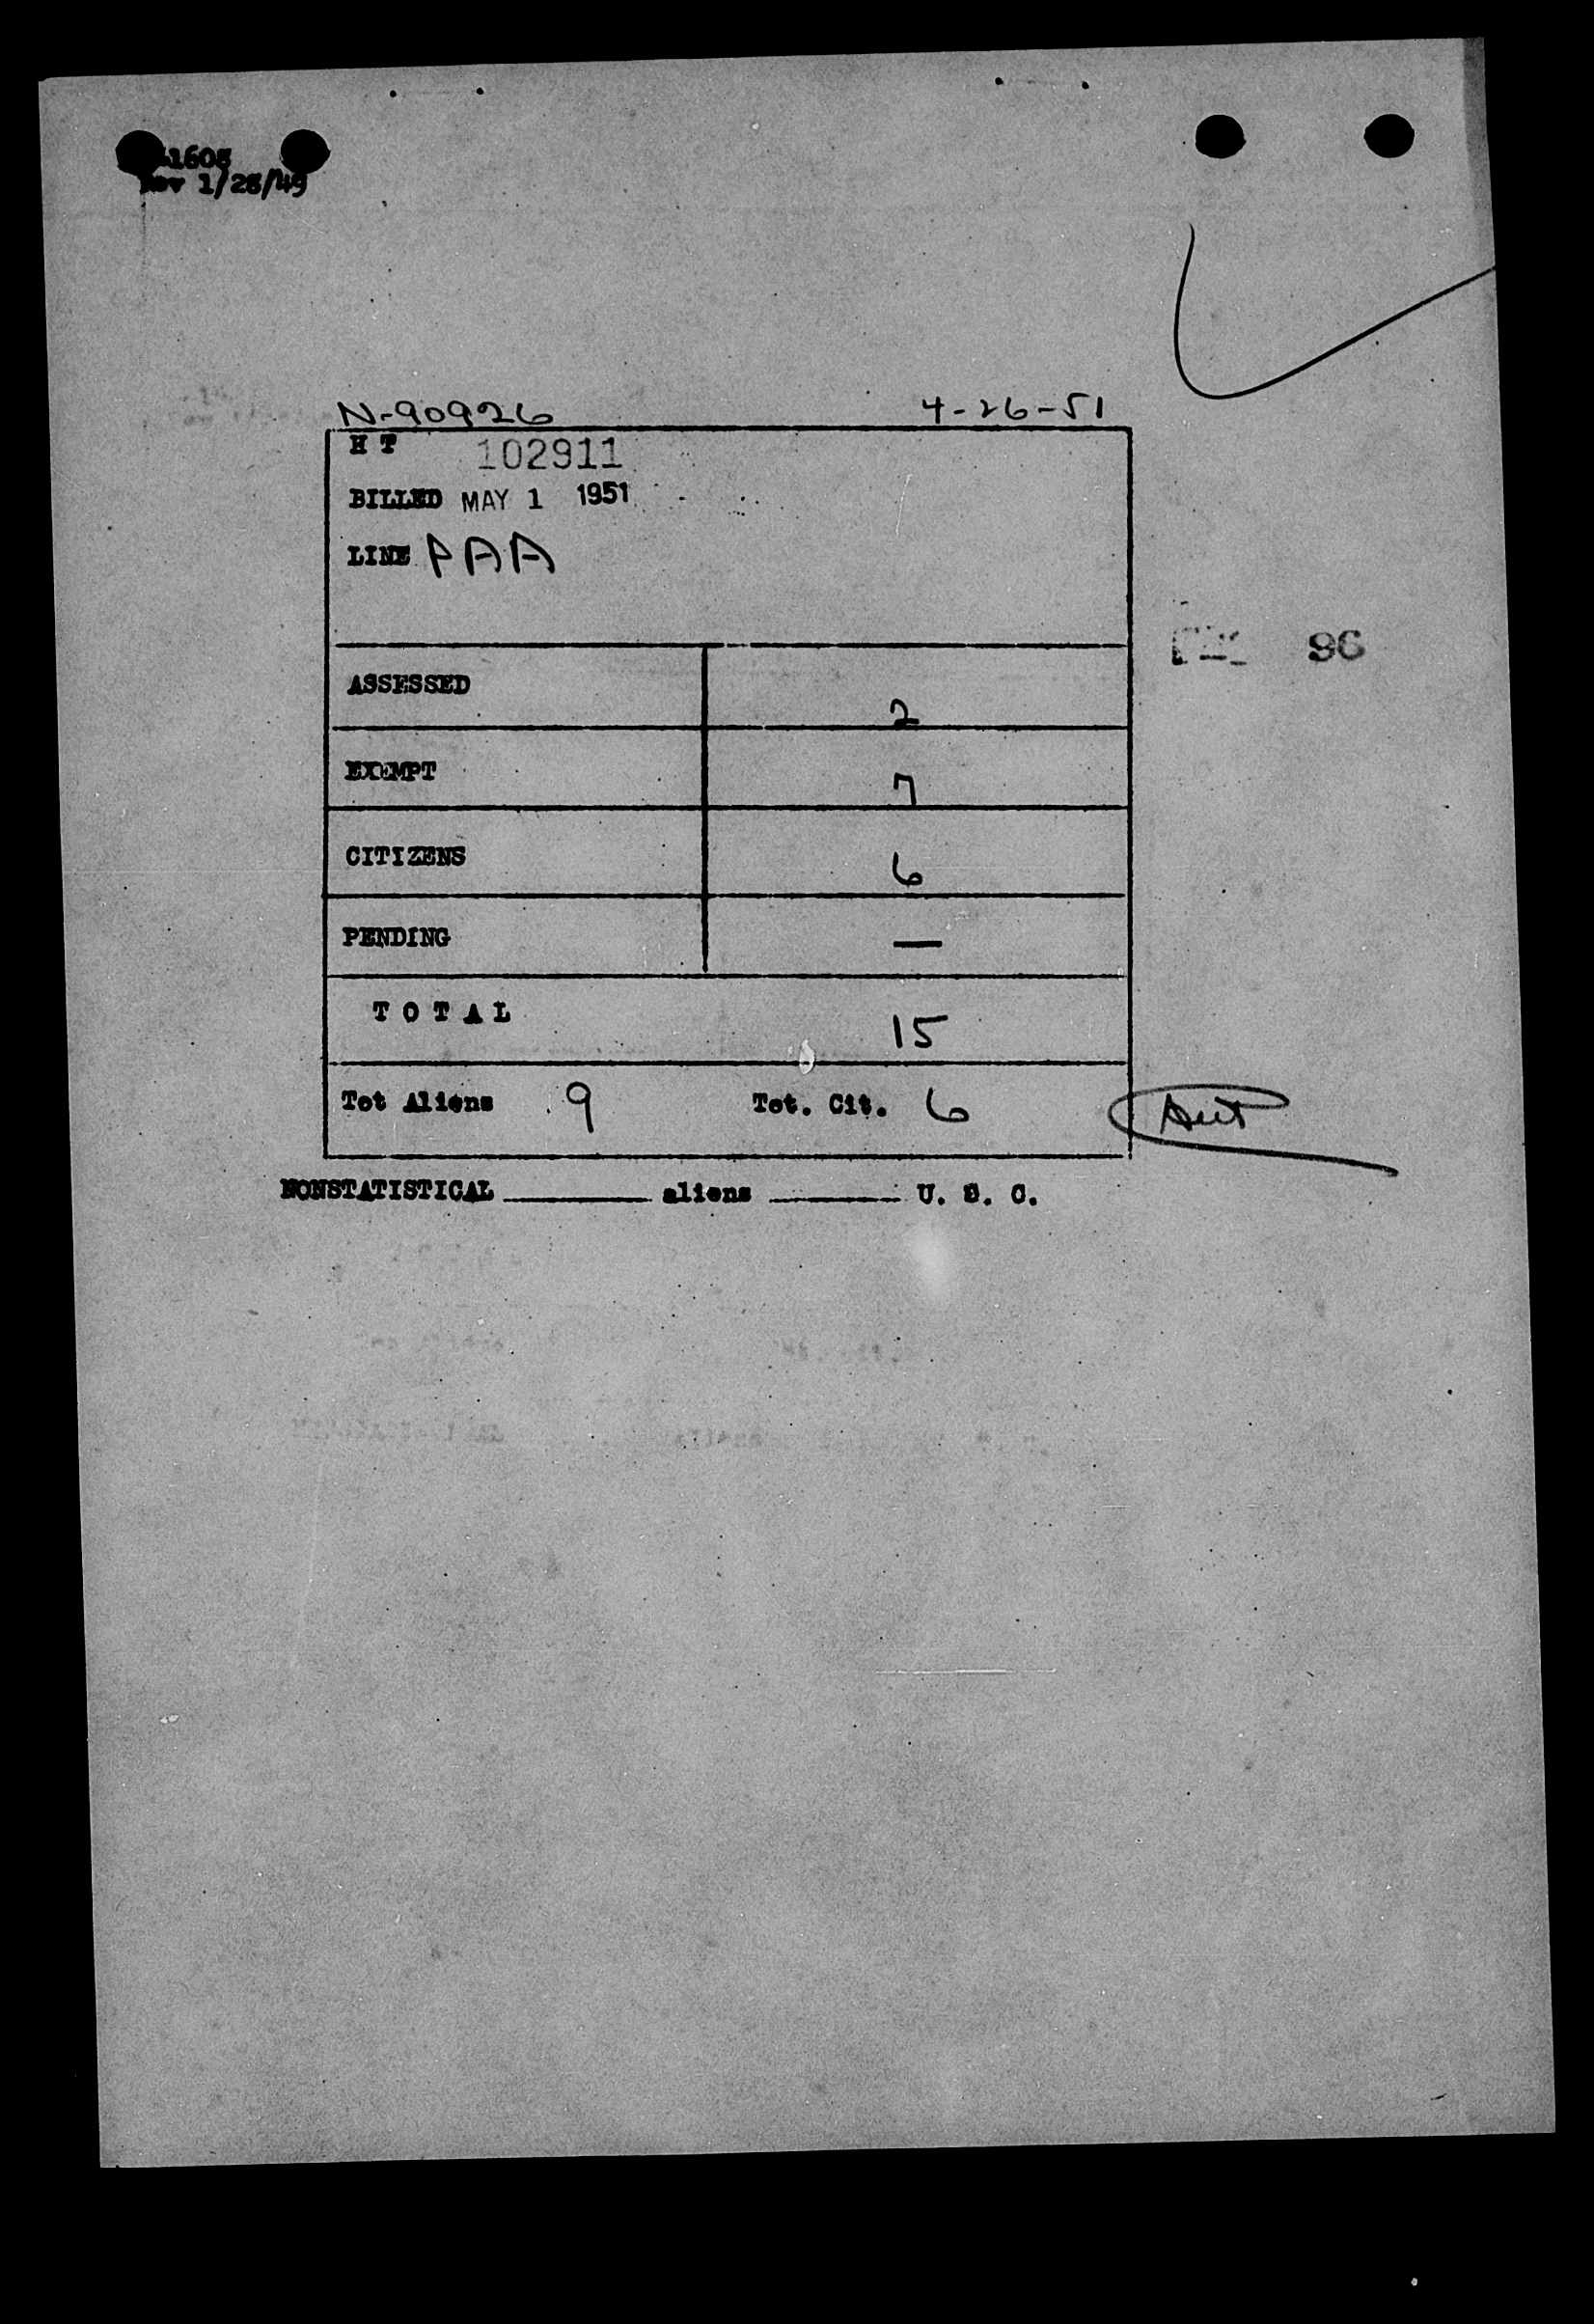 1/28/49
N-90926 4-26-51
H T 102911
BILLED MAY 1 1951
LINE PAA
96
ASSESSED 2
EXEMPT 7
CITIZENS 6
PENDING —
TOTAL 15
Tot Aliens 9 Tot. Cit. 6
NONSTATISTICAL ______ aliens ______ U. S. C.